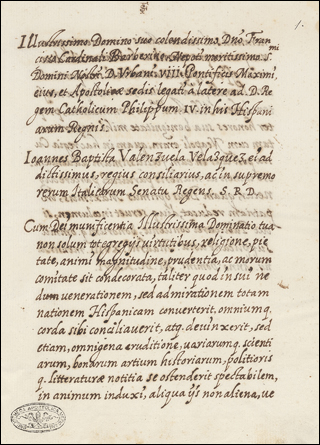 1.
Illustrissimo Domino suo colendissimo, Dno Fran
cisco Cardinali Barberino, Nepoti meritissimo S.mi
Domini Nostri D. Urbani VIII Pontificis Maximi,
eius, et Apostolicae sedis legati à latere ad D. Re
gem Catholicum Philippum IV in his Hispani
arum Regnis.
Ioannes Baptista Valenzuela Velazquez, ei ad
dictissimus, regius consiliarius, ac in supremo
rerum Italicarum Senatu Regens, S. R. D.
Cum Dei munificentia Illustrissima Dominatio tua
non solum tot egregijs virtutibus, religione, pie
tate, animi magnitudine, prudentia, ac morum
comitate sit condecorata, taliter quod in sui ne
dum venerationem, sed admirationem totam
nationem Hispanicam converterit, omniumq.
corda sibi conciliaverit, atq. devinxerit, sed
etiam, omnigena eruditione, variarumq. scienti
arum, bonarum artium historiarum, politioris
q. litteraturae notitia se ostenderit spectabilem,
in animum induxi, aliqua ijs non aliena, ve